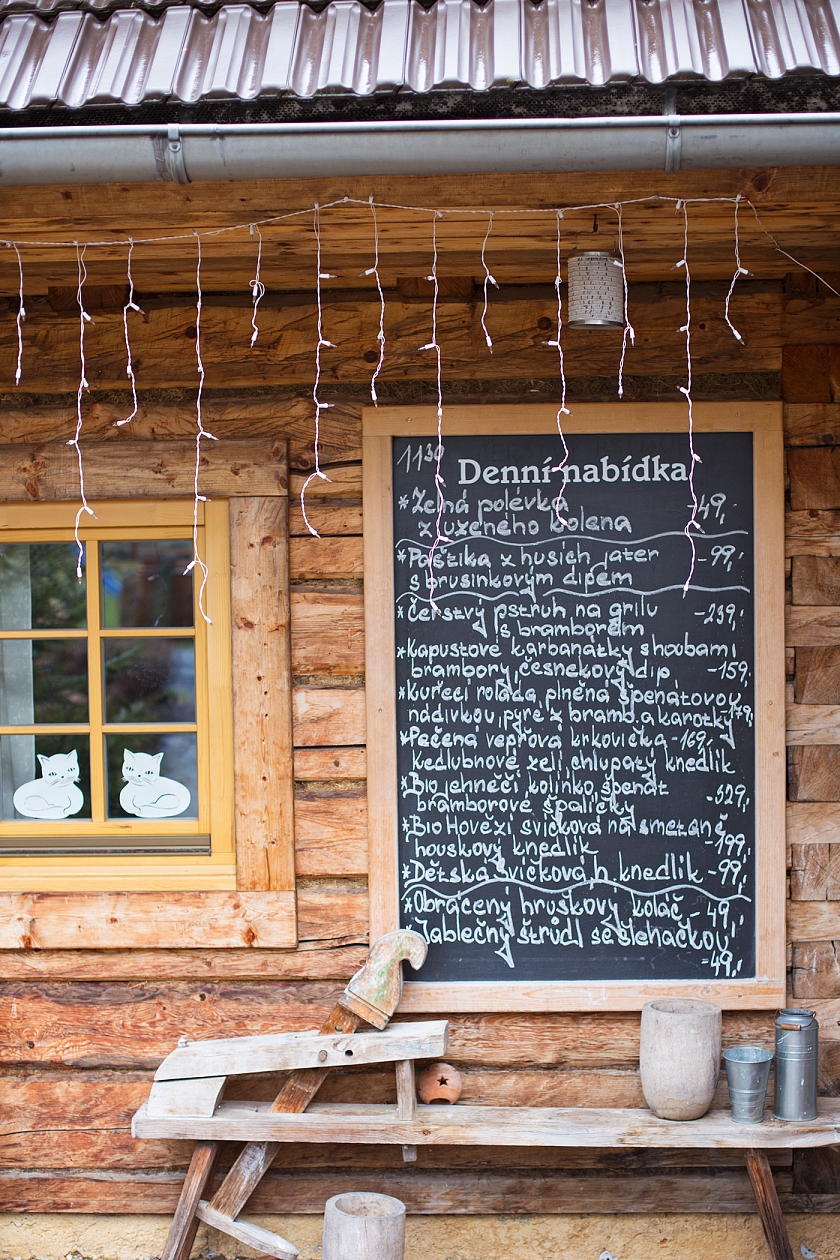 11³⁰
Denní nabídka
*Zelná polévka
z uzeného kolena 49,-
*Paštika z husích jater -99,-
s brusinkovým dipem
*Čerstvý pstruh na grilu -239,-
s bramborem
*Kapustové karbanátky s houbami
brambory, česnekový dip -159,-
*Kuřecí roláda plněná špenátovou
nádivkou, pyré z bramb. a karotky
*Pečená vepřová krkovička -169,-
kedlubnové zelí, chlupatý knedlík
*Bio jehněčí kolínko, špenát
bramborové špalíčky -329,-
*Bio Hovězí svíčková na smetaně
houskový knedlík -199,-
*Dětská svíčková, h. knedlík -99,-
*Obrácený hruškový koláč -49,-
*Jablečný štrúdl se šlehačkou
-49,-